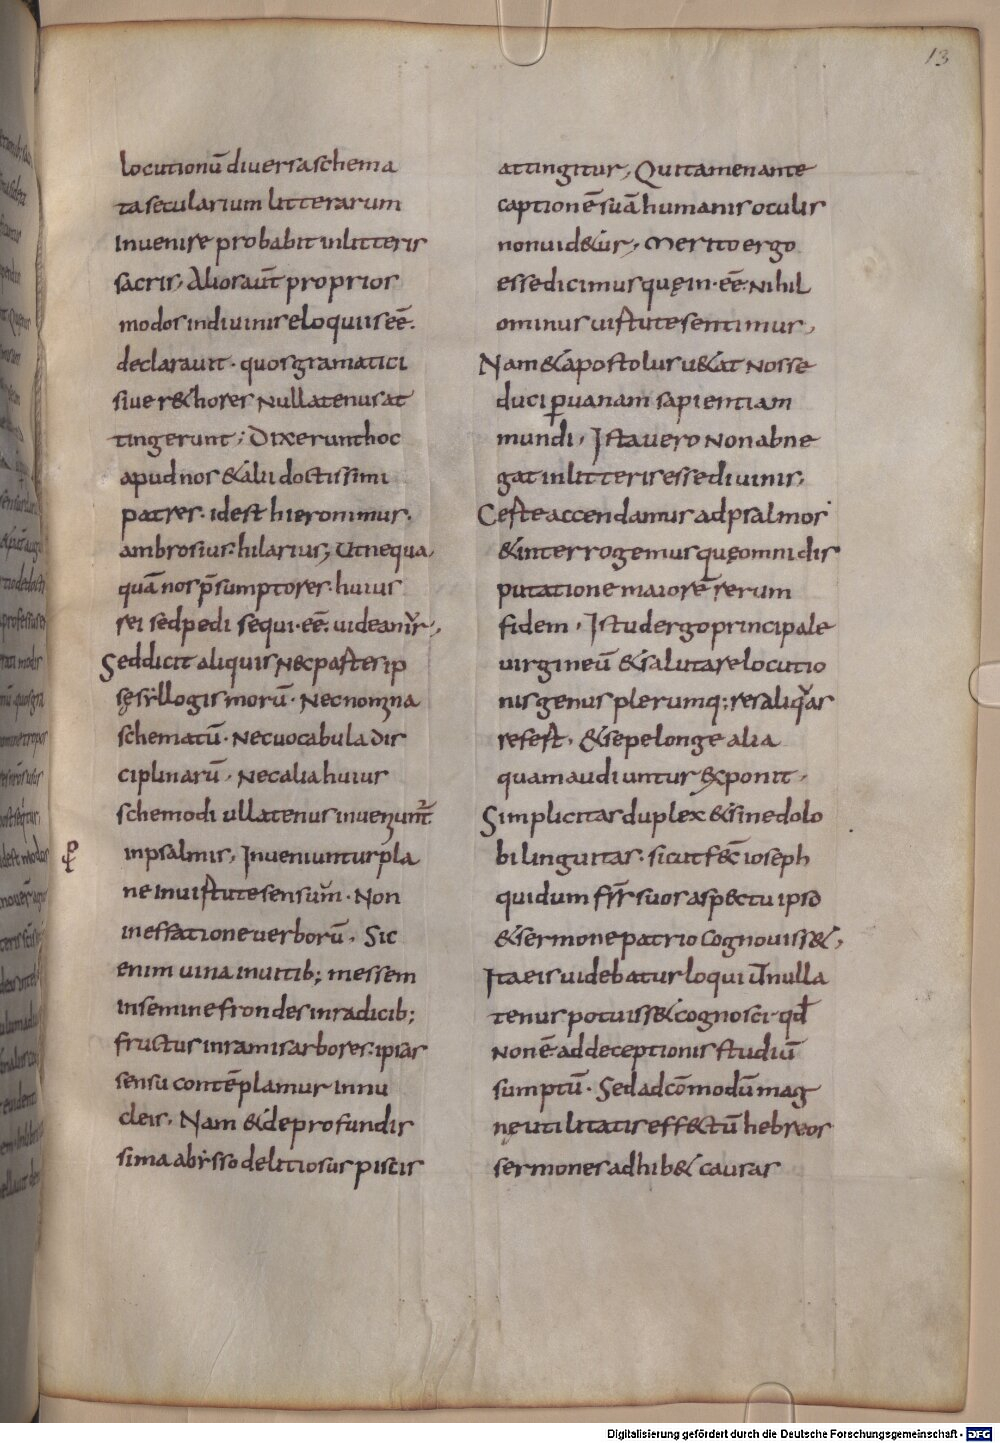 13
locutionū diuersa schema
ta secularium litterarum
Inuenire probabit in litteris
sacris, Alios aūt proprios
modos in diuinis eloquiis eē.
declarauit. quos gramatici
siue r&hores Nullatenus at
tingerunt; Dixerunt hoc
apud nos & alii doctissimi
patres. id est hieronimus.
ambrosius. hilarius; Ut nequa
quā nos p̄sumptores. huius
rei sed pedisequi. eē. uideamr̄.
Sed dicit aliquis Nec partes ip
sę syllogismorū. Nec nomina
schematū. Nec uocabula dis
ciplinarū. Nec alia huius
schemodi ullatenus inueniunt̄
in psalmis, Inueniuntur pla
ne In uirtute sensuum. Non
in effatione uerborū. Sic
enim uina in uitib; messem
In semine frondes in radicib;
fructus in ramis arbores. ipsas
sensu contēplamur In nu
cleis. Nam & de profundis
sima abysso delitiosus piscis
attingitur, Qui tamen ante
captionē suā humanis oculis
non uid&ur, Merito ergo
esse dicimus quę in. eē. Nihil
ominus uirtute sentimus,
Nam & apostolus u&at Nos se
duci per uanam sapientiam
mundi, Ista uero Non abne
gat in litteris esse diuinis,
Certe accendamus ad psalmos
& interrogemus quę omni dis
putatione maiorē rerum
fidem, Istud ergo principale
uirgineū & salutare locutio
nis genus plerumq; res aliquas
refert. & sepe longe alia
quam audiuntur exponit.
Simplicitas duplex & sine dolo
bilinguitas. sicut fec̄ ioseph
qui dum frr̄ suos aspectu ipso
& sermone patrio Cognouiss&,
Ita eis uidebatur loqui ut nulla
tenus potuiss& cognosci. qd̄
Non ē ad deceptionis studiū
sumptū. Sed ad cōmodū mag
nę utilitatis effectū hebreos
sermones adhib& causas
Digitalisierung gefördert durch die Deutsche Forschungsgemeinschaft - DFG